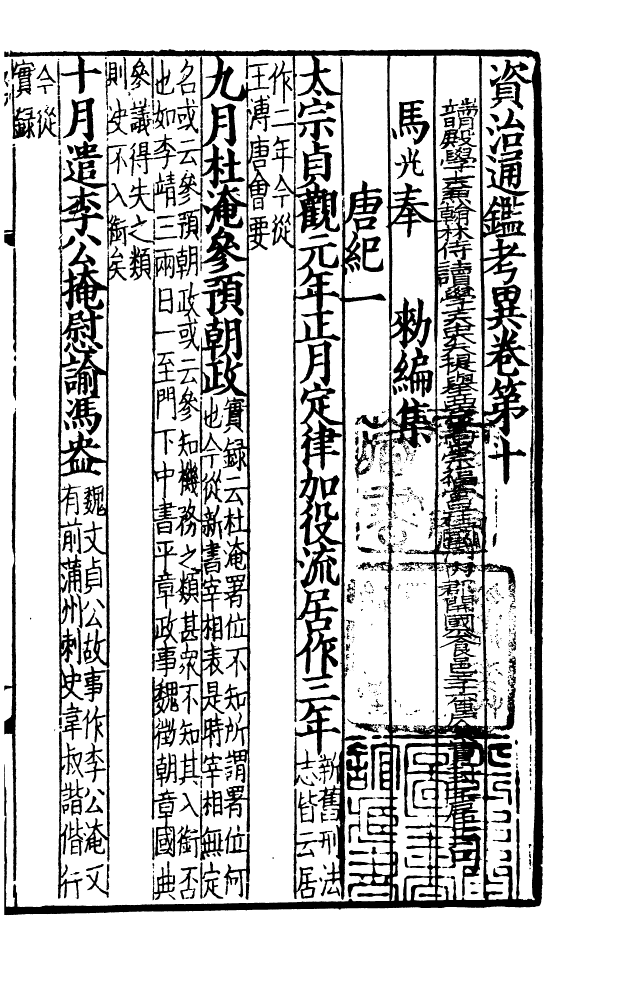 資治通鑑考異卷第十
端明殿學士兼翰林侍讀學士
郡開國公食邑
馬光奉　勑編集
唐紀一
太宗貞觀元年正月定律加役流居作三年新舊刑法
志皆云居
作二年今從
王溥唐會要
九月杜淹參預朝政實録云杜淹署位不知所謂署位何
也今從新書宰相表是時宰相無定
名或云參預朝政或云參知機務之類甚衆不知其入銜否
也如李靖三兩日一至門下中書平章政事魏徵朝章國典
參議得失之類
則決不入銜矣
十月遣李公掩慰諭馮盎魏文貞公故事作李公淹又
有前蒲州刺史韋叔諧偕行
今從
實録